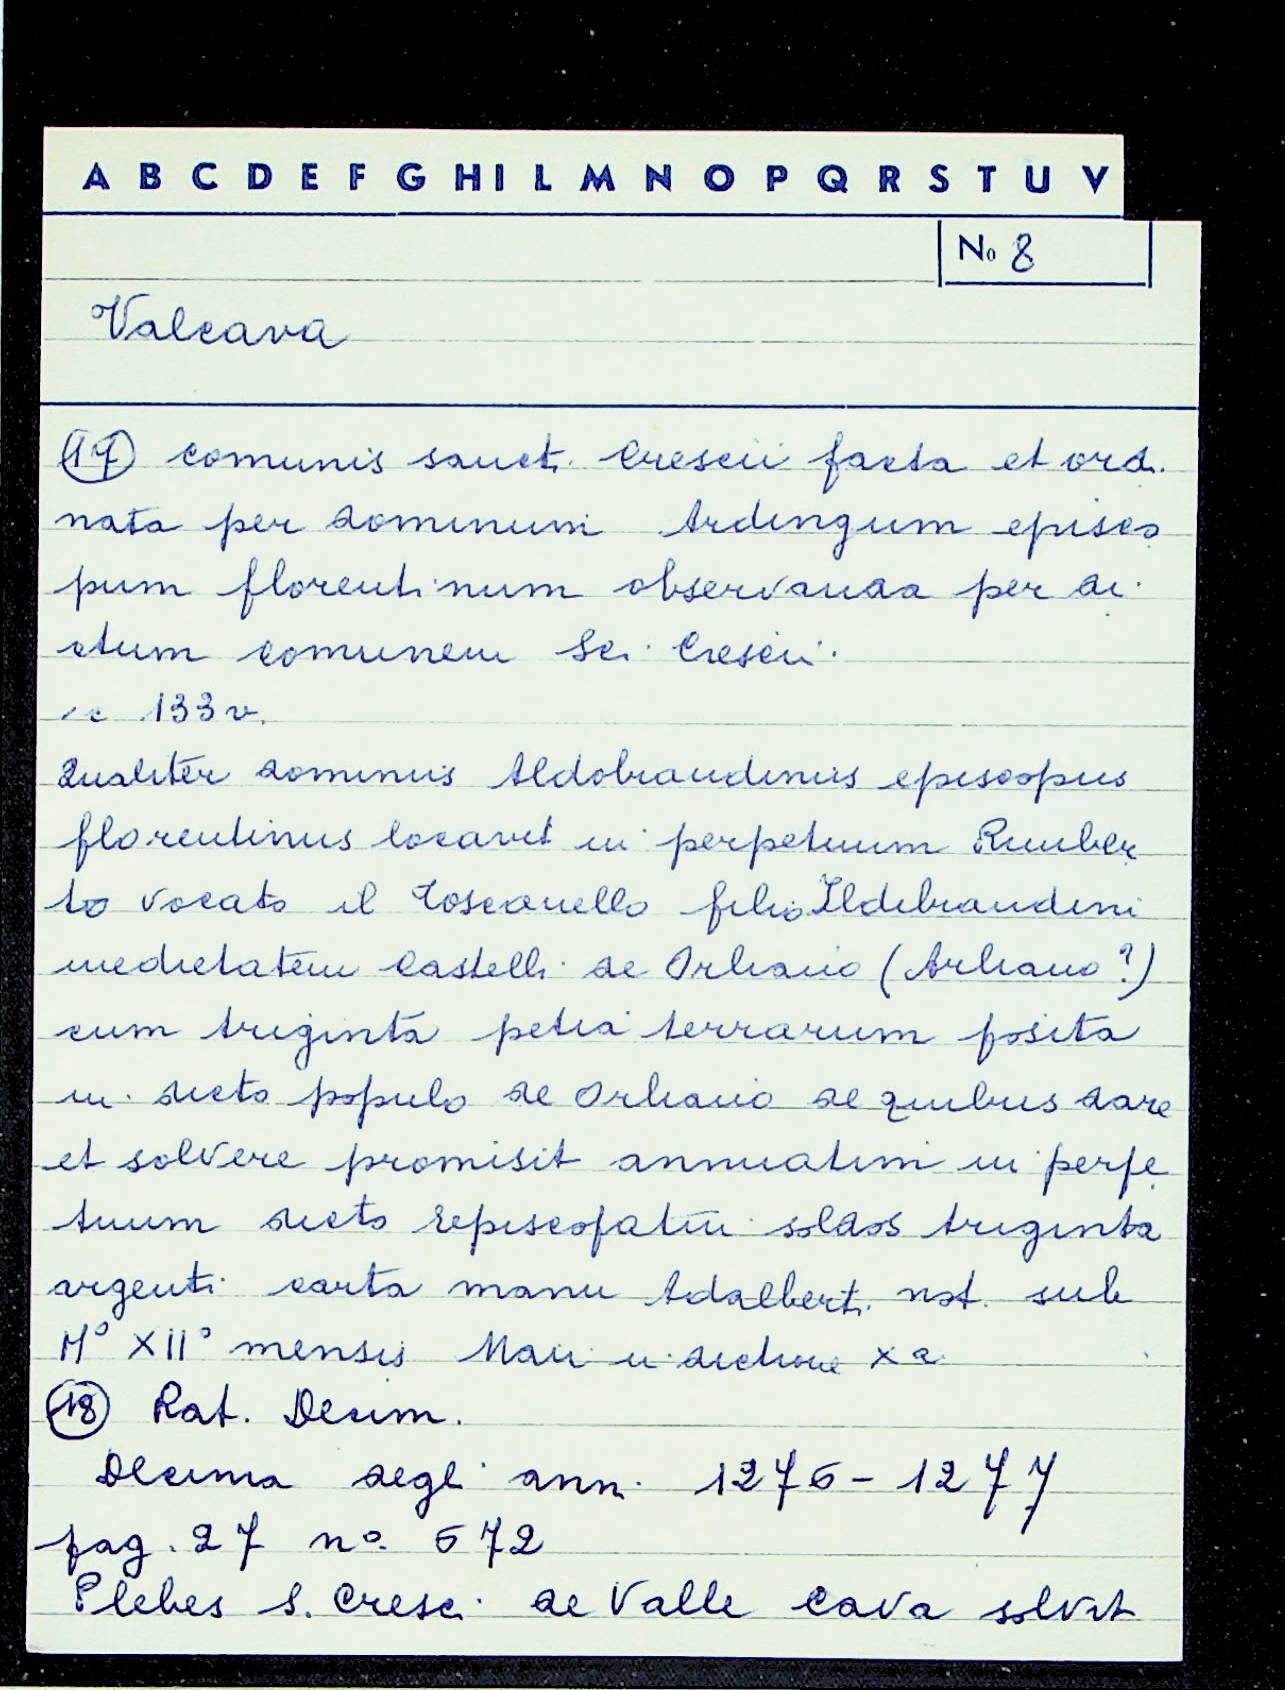 A B C D E F G H I L M N O P Q R S T U V
No 8
Valcava
(17) comunis sancti Crescii facta et ordi
nata per dominum Ardingum episco
pum florentinum observanda per di
ctum comunem Sci Crescii.
c 133 v.
Qualiter dominus Aldobrandinus episcopus
florentinus locavit in perpetuum Rember
to vocato il Toscanello filio Ildebrandini
medietatem Castelli de Orliano (Arliano?)
cum triginta petia terrarum posita
in dicto populo de Orliano de quibus dare
et solvere promisit annuatim in perpe
tuum dicto episcopatui soldos triginta
argenti carta manu Adalberti not. sub
M° XII° mensis Maii indictione Xa
(18) Rat. Decim.
Decima degli anni 1276 - 1277
pag. 27 n°. 672
Plebes S. Cresci de Valle Cava solvit